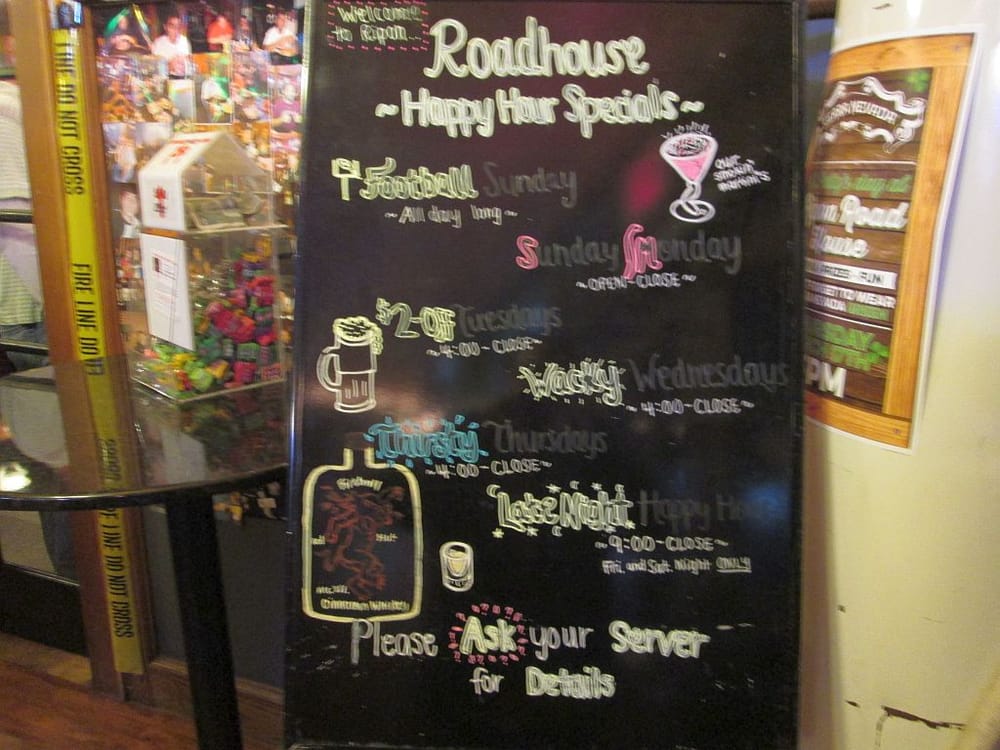 Welcome
to Ripon...
Roadhouse
~Happy Hour Specials~
Football Sunday
~All day long~
our
smokin'
Sunday Monday
~OPEN-CLOSE~
$2-Off Tuesdays
~4:00-CLOSE~
Wacky Wednesdays
~4:00-CLOSE~
Thirsty Thursdays
~4:00-CLOSE~
Late Night Happy
~9:00-CLOSE~
Fri. and Sat. Night ONLY!
Fireball
Cinnamon Whisky
Please Ask your Server
for Details
FIRE LINE DO NOT CROSS
FIRE LINE DO NOT CROSS
Road
House
FUN!
TO WEAR
PM